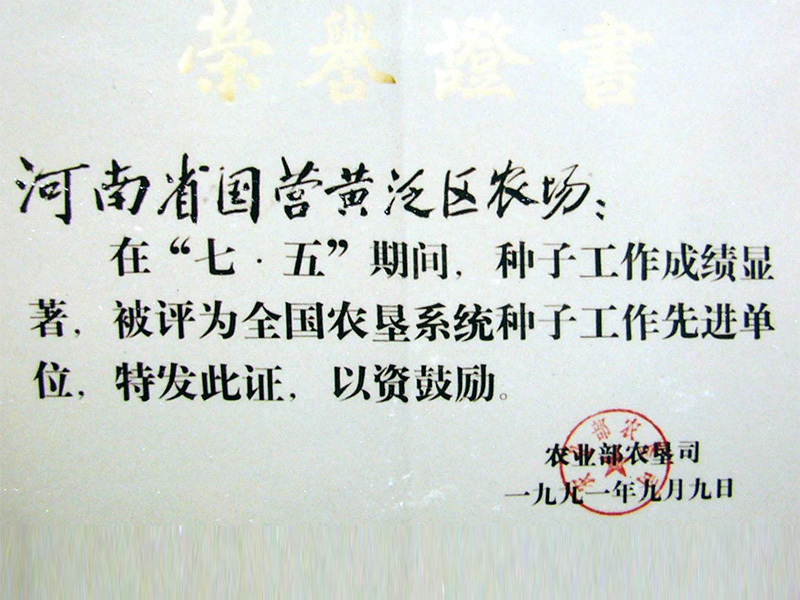 荣誉證書
河南省国营黄泛区农场：
在“七·五”期间，种子工作成绩显
著，被评为全国农垦系统种子工作先进单
位，特发此证，以资鼓励。
农业部农垦司
一九九一年九月九日